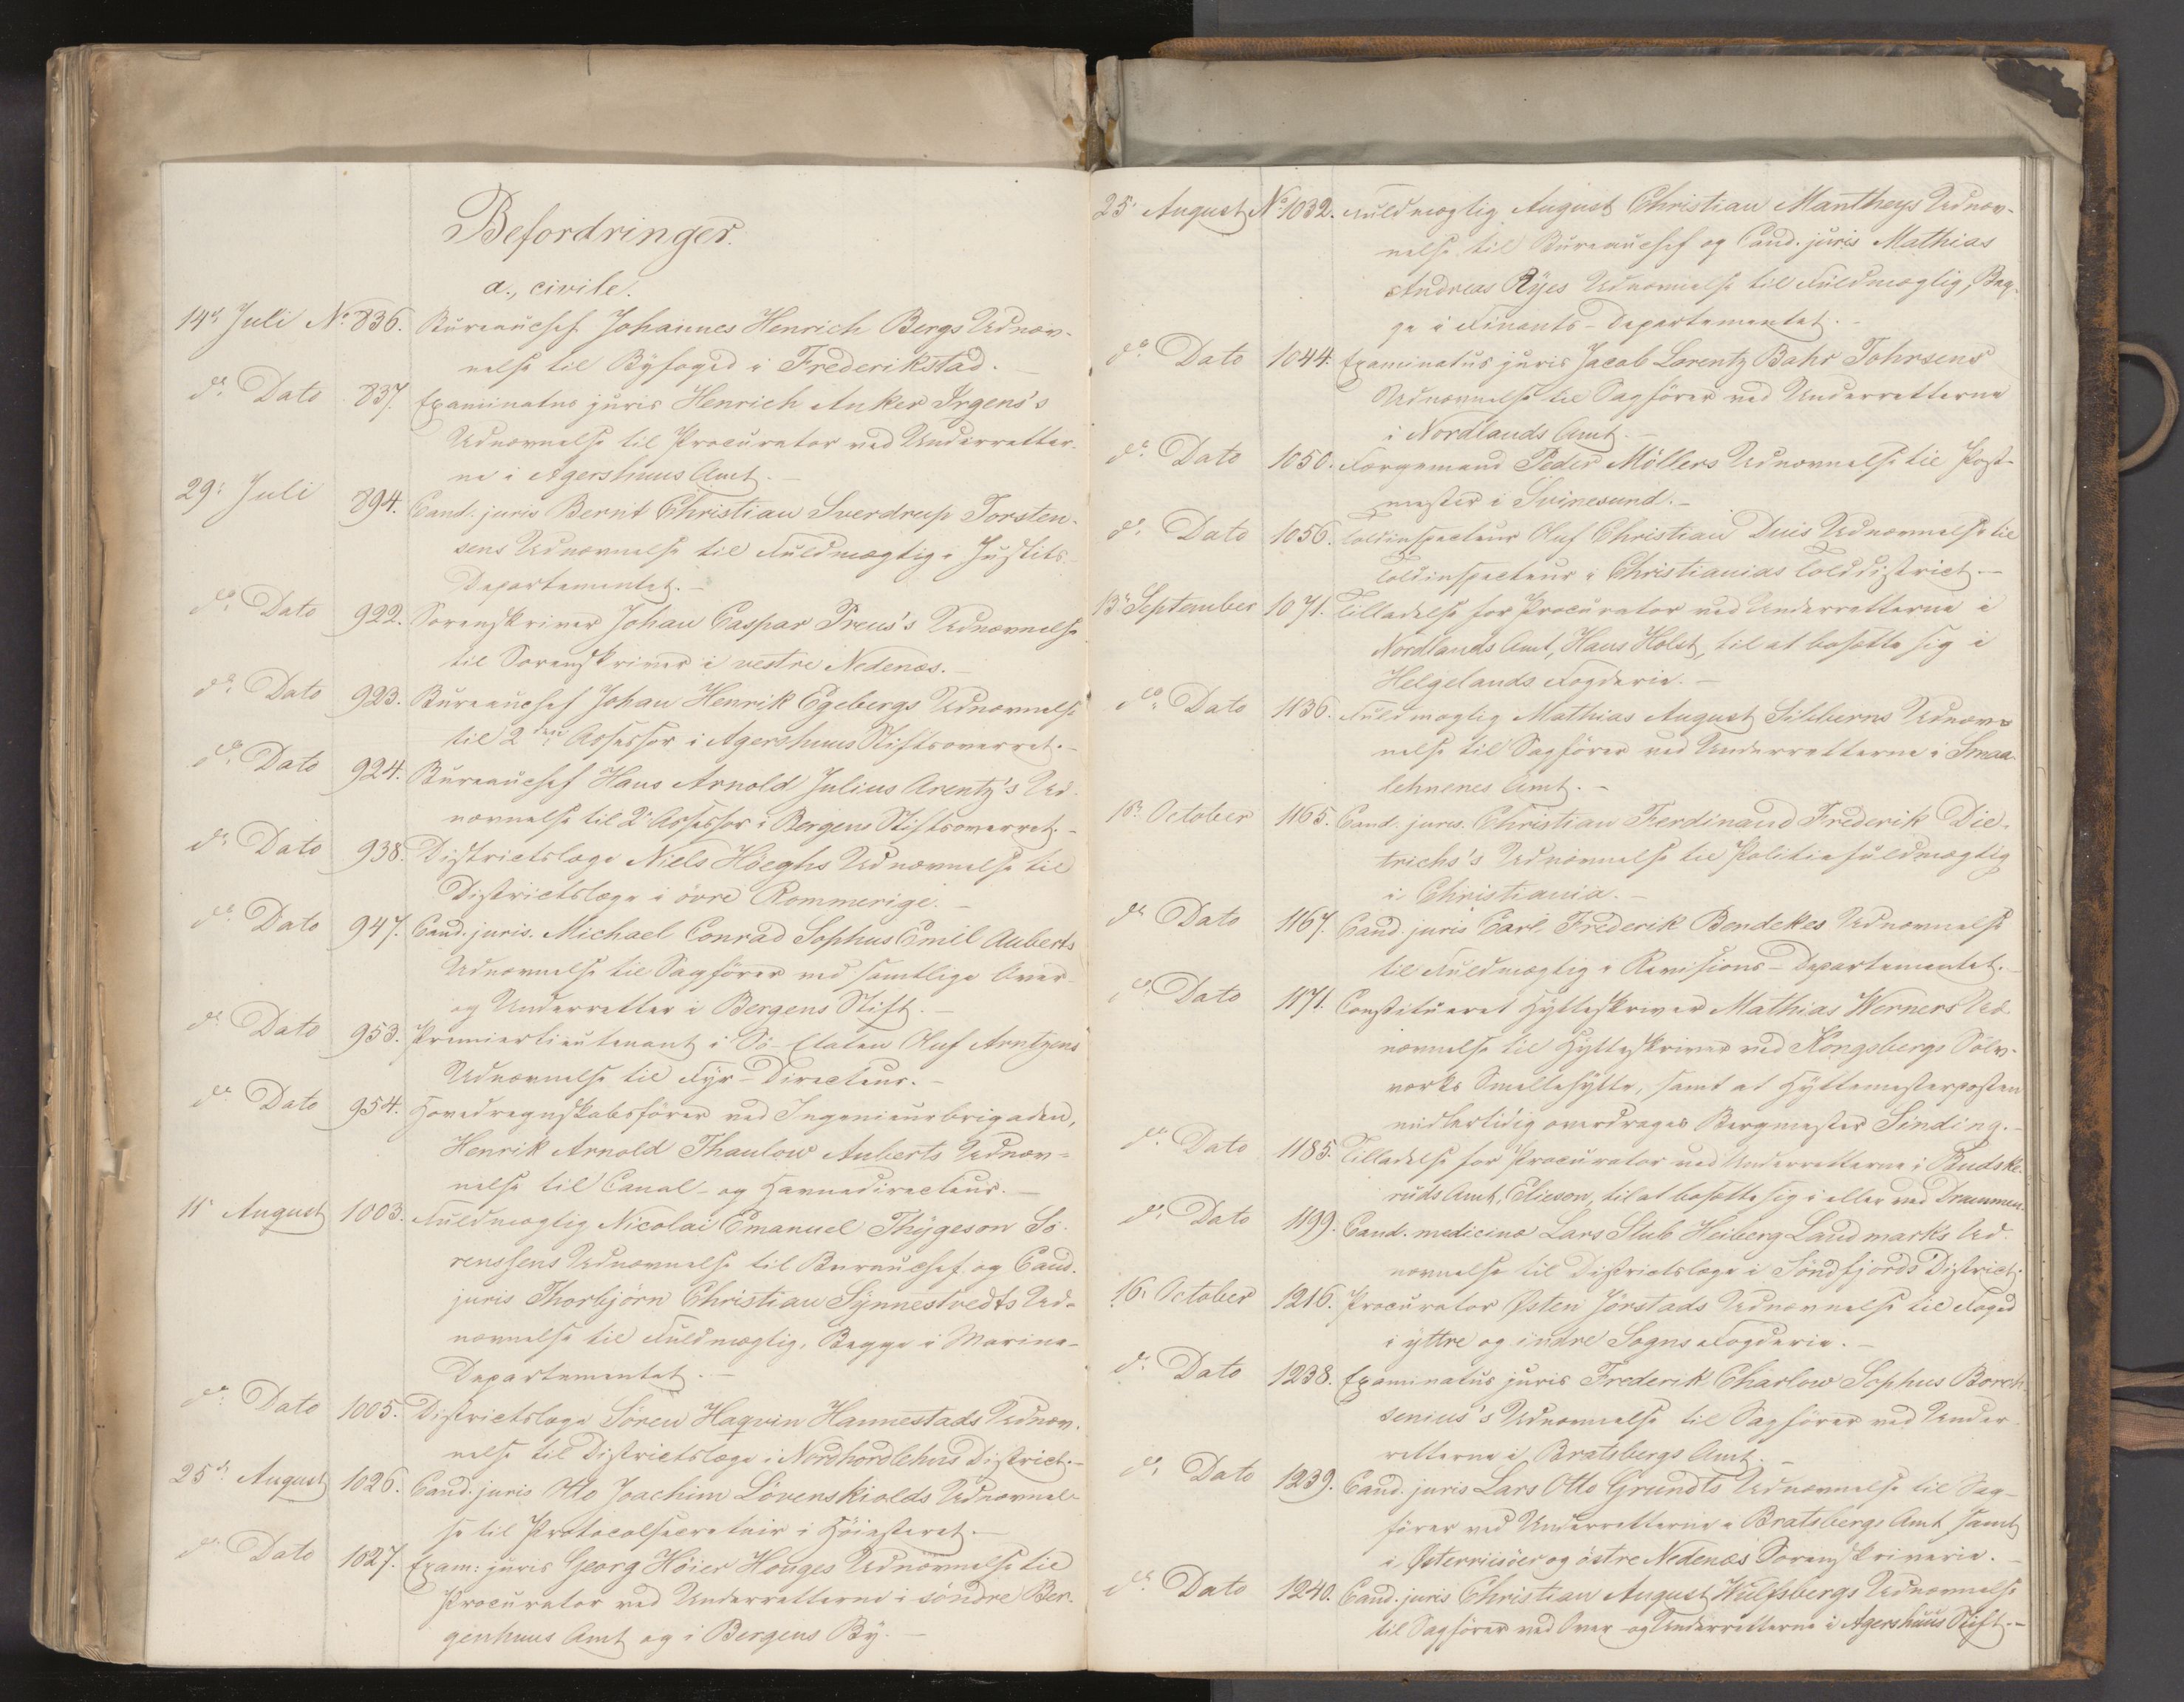 Befordringer.
a., civile.
14de Juli No 836. Büreauchef Johannes Henrich Bergs Udnæv-
nelse til Byfoged i Frederikstad. -
do Dato 837. Examinatus juris Henrich Anker Irgens's
Udnævnelse til Procurator ved Underretter-
ne i Agershuus Amt. -
29. Juli 894. Cand. juris Bernt Christian Sverdrup Torsten-
sens Udnævnelse til Fuldmægtig i Justits-
Departementet. -
do Dato 922. Sorenskriver Johan Caspar Preus's Udnævnelse
til Sorenskriver i vestre Nedenæs. -
do Dato 923. Bureauchef Johan Henrik Egebergs Udnævnelse
til 2den Assessor i Agershuus Stiftsoverret. -
do Dato 924. Bureauchef Hans Arnold Julius Arentz's Ud-
nævnelse til 2. Assessor i Bergens Stiftsoverret. -
do Dato 938. Districtslæge Niels Höeghs Udnævnelse til
Districtslæge i övre Rommerige. -
do Dato 947. Cand. juris. Michael Conrad Sophus Emil Auberts
Udnævnelse til Sagförer ved samtlige Over-
og Underretter i Bergens Stift. -
do Dato 953. Premierlieutenant i Sö-Etaten Oluf Arntzens
Udnævnelse til Fyr-Directeur. -
do Dato 954. Hovedregnskabsförer ved Ingenieurbrigaden,
Henrik Arnold Thaulow Auberts Udnæv-
nelse til Canal- og Havnedirecteur. -
11. August 1003. Fuldmægtig Nicolai Emanuel Thygeson Sö-
renssens Udnævnelse til Bureauchef og Cand.
juris Thorbjörn Christian Synnestvedts Ud-
nævnelse til Fuldmægtig, Begge i Marine-
Departementet. -
do Dato 1005. Districtslæge Sören Haqvin Hannestads Udnæv-
nelse til Districtslæge i Nordhordlehns District. -
25de August 1026. Cand. juris Otto Joachim Lövenskiolds Udnævnel-
se til Protocolsecretair i Höiesteret. -
do Dato 1027. Exam: juris Georg Höier Houges Udnævnelse til
Procurator ved Underretterne i söndre Ber-
genhuus Amt og i Bergens By. -
25. August No 1032. Fuldmægtig August Christian Mantheys Udnæv-
nelse til Bureauchef og Cand. juris Mathias
Andreas Ryes Udnævnelse til Fuldmægtig, Beg-
ge i Finants-Departementet. -
do Dato 1044. Examinatus juris Jacob Lorentz Bahr Tohrsens
Udnævnelse til Sagförer ved Underretterne
i Nordlands Amt. -
do Dato 1050. Færgemand Peder Möllers Udnævnelse til Post-
mester i Svinesund. -
do Dato 1056. Toldinspecteur Oluf Christian Duis Udnævnelse til
Toldinspecteur i Christianias Tolddistrict. -
13. September 1071. Tilladelse for Procurator ved Underretterne i
Nordlands Amt, Hans Holst, til at bosætte sig i
Helgelands Fogderie. -
do Dato 1136. Fuldmægtig Mathias August Sibberns Udnæv-
nelse til Sagförer ved Underretterne i Smaa-
lehnenes Amt. -
1. October 1165. Cand. juris. Christian Ferdinand Frederik Die-
trichs's Udnævnelse til Politiefuldmægtig
i Christiania. -
do Dato 1167. Cand. juris Carl Frederik Bendekes Udnævnelse
til Fuldmægtig i Revisions-Departementet. -
do Dato 1171. Constitueret Hytteskriver Mathias Werners Ud-
nævnelse til Hytteskriver ved Kongsbergs Sölv-
værks Smeltehytte, samt at Hyttemesterposten
midlertidig overdrages Bergmester Sinding. -
do Dato 1185. Tilladelse for Procurator ved Underretterne i Budske-
ruds Amt, Elieson, til at bosætte sig i eller ved Drammen.
do Dato 1199. Cand. medicinæ Lars Stub Heiberg Landmarks Ud-
nævnelse til Districtslæge i Söndfjords District.
16. October 1216. Procurator Østen Jörstads Udnævnelse til Foged
i yttre og indre Sogns Fogderie. -
do Dato 1238. Examinatus juris Frederik Charlow Sophus Borch-
senius's Udnævnelse til Sagförer ved Under-
retterne i Bratsbergs Amt. -
do Dato 1239. Cand. juris Lars Otto Grundts Udnævnelse til Sag-
förer ved Underretterne i Bratsbergs Amt samt
i Østerriisöer og östre Nedenæs Sorenskriverie. -
do Dato 1240. Cand. juris Christian August Wulfsbergs Udnævnelse
til Sagförer ved Over- og Underretterne i Agershuus Stift. -